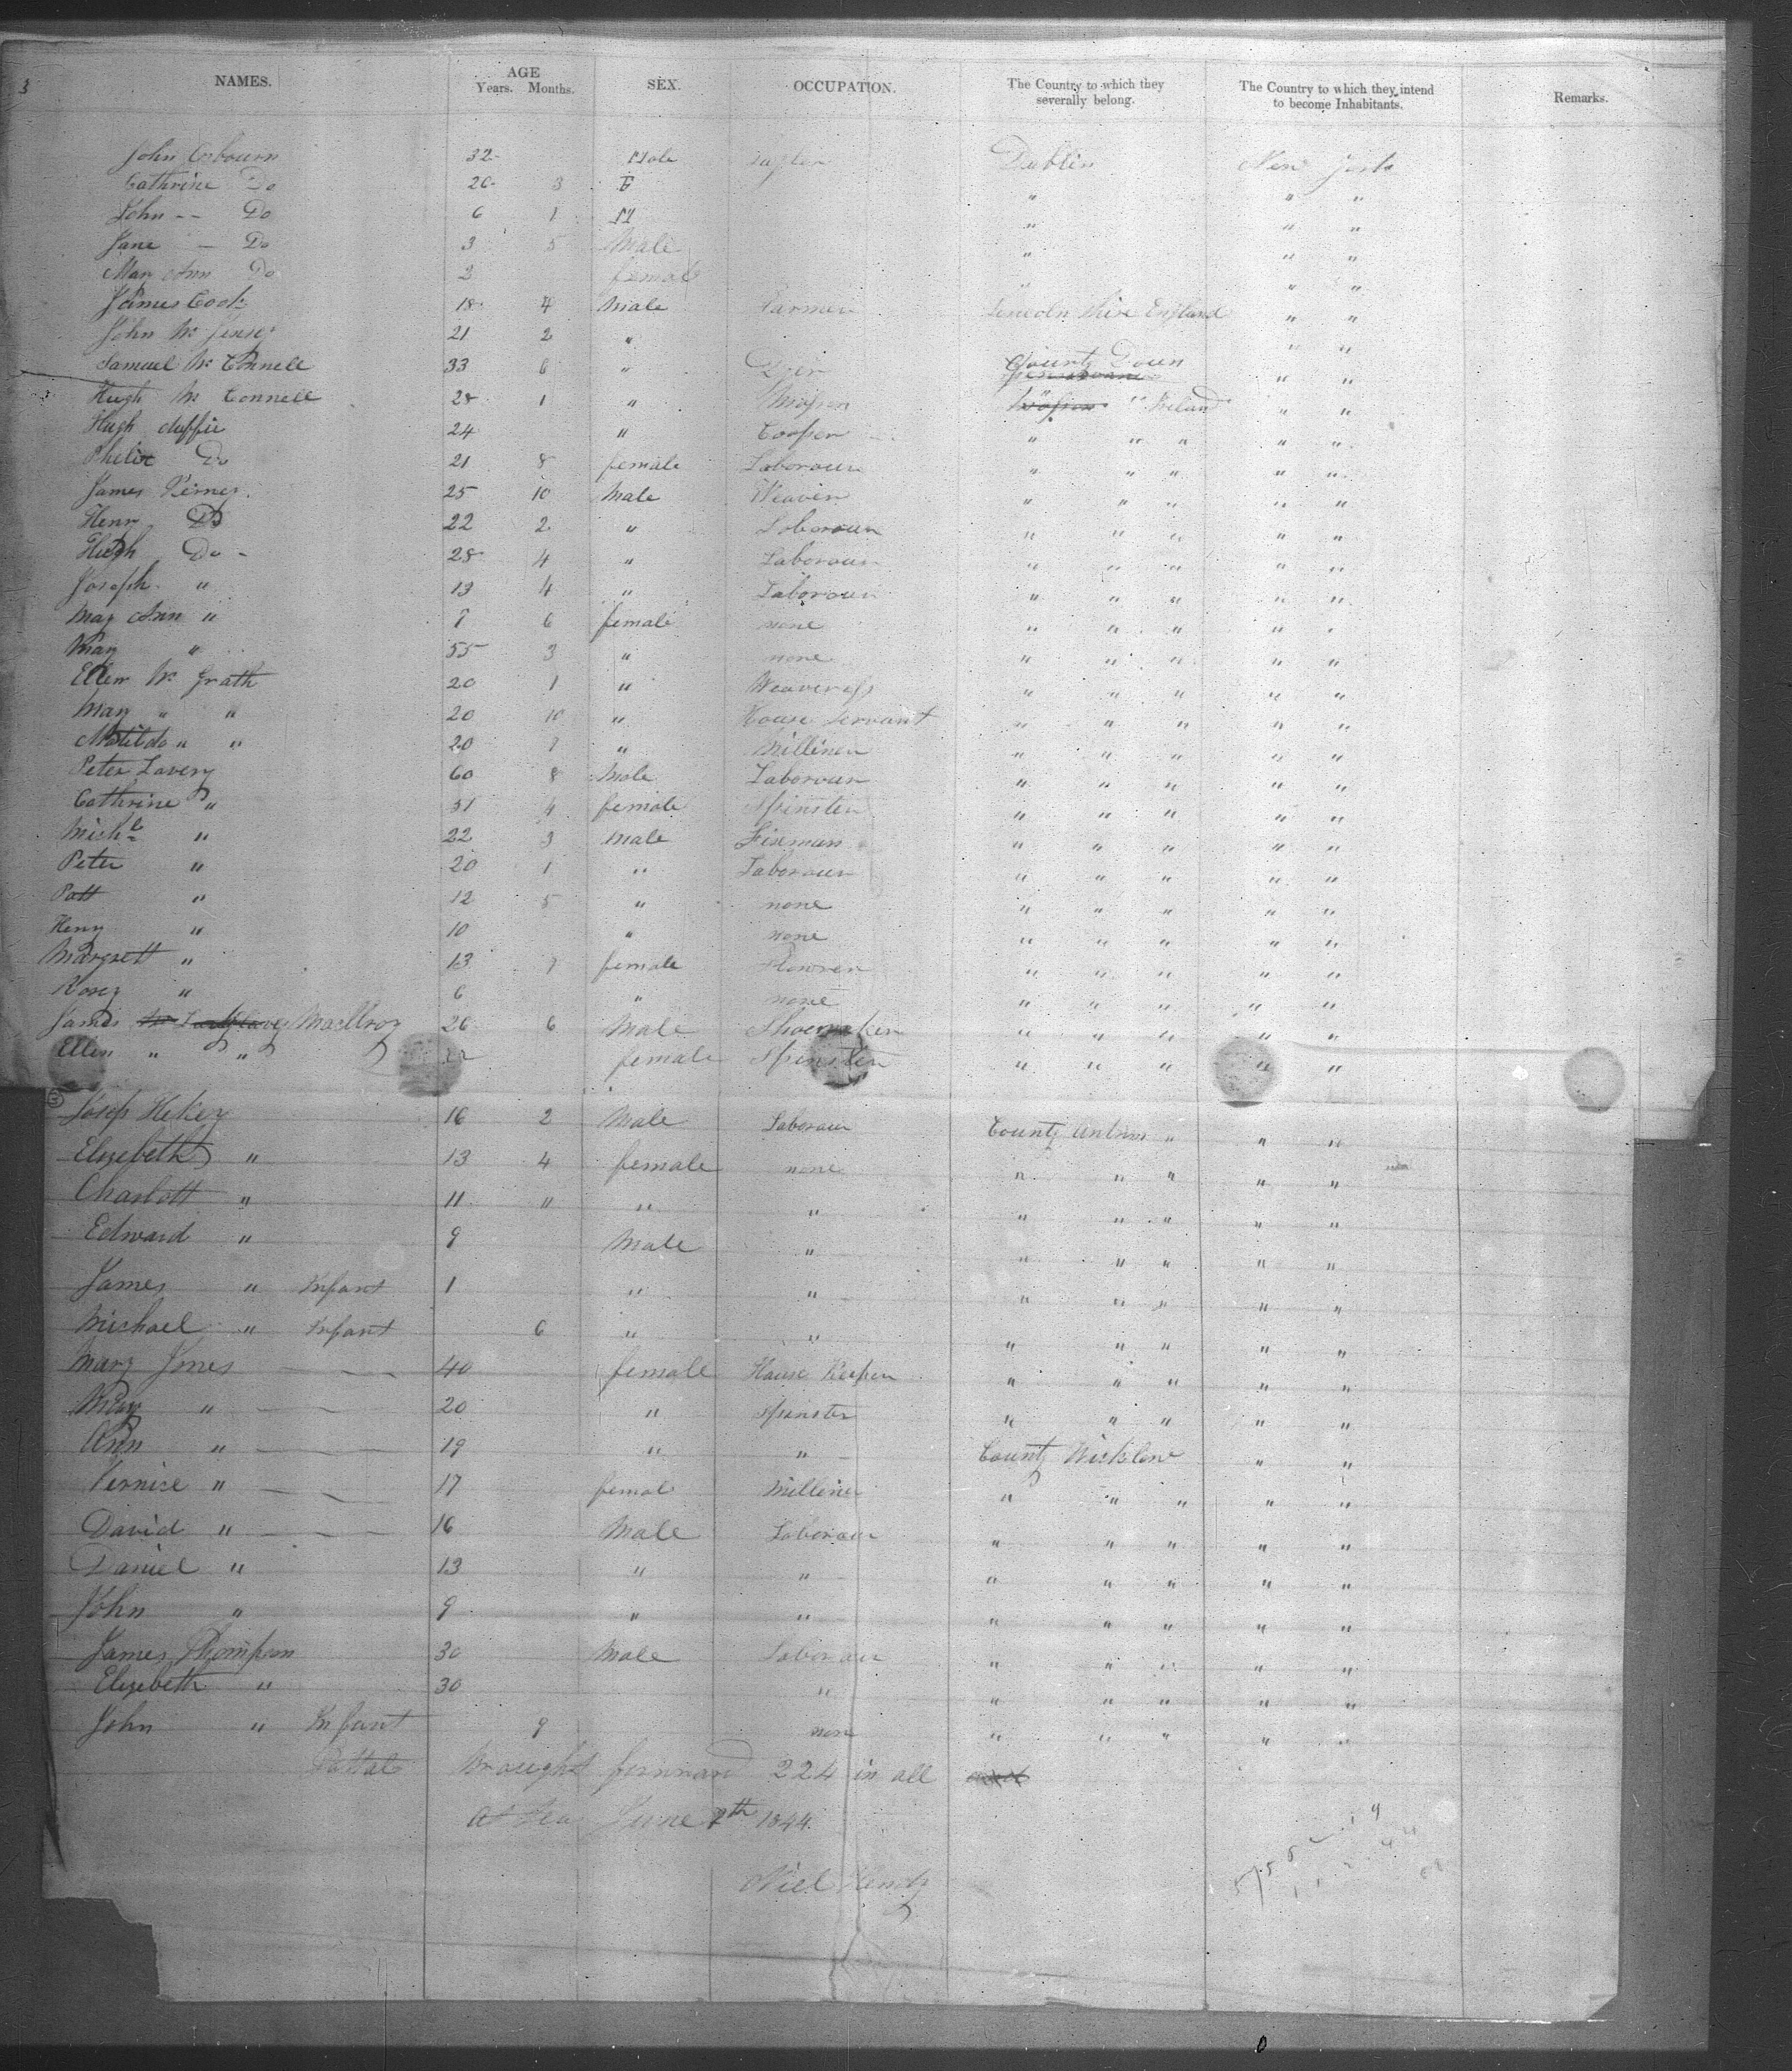 3
NAMES. AGE Years. Months. SEX. OCCUPATION. The Country to which they severally belong. The Country to which they intend to become Inhabitants. Remarks.
John Osbourn 32 Male Dublin New York
Cathrine Do 26 3 F " " "
John -- Do 6 1 M " " "
Jane — Do 3 5 Male " " "
Mary Ann Do 2 female " " "
James Cook 18 4 Male Farmer Lincoln Shire England " "
John Mc 21 2 " " "
Samuel Mc Connell 33 6 " County Down " "
Hugh Mc Connell 28 1 " " " Ireland " "
Hugh duffie 24 " Cooper " " " " "
Phelix Do 21 8 female Laborour " " " " "
James 25 10 Male Weaver " " " " "
Henry Do 22 2 " Laborour " " " " "
Hugh Do - 28 4 " Laborour " " " " "
Joseph " 19 4 " Laborour " " " " "
May Ann " 7 6 female none " " " " "
May " 55 3 " none " " " " "
Ellen Mc Grath 20 1 " Weaveress " " " " "
May " " 20 10 " House Servant " " " " "
Matilda " " 20 7 " Milliner " " " " "
Peter Lavery 60 8 Male Laborour " " " " "
Cathrine " 51 4 female Spinster " " " " "
Michl " 22 3 Male " " " " "
Peter " 20 1 " Laborour " " " " "
Patt " 12 5 " none " " " " "
Henry " 10 " none " " " " "
Margrett " 13 7 female " " " " "
Rosey " 6 " none " " " " "
James MacIlroy 26 6 Male Shoemaker " " " " "
Ellen " " female Spinster " " " " "
Josep Hekey 16 2 Male Laborour County Antrim " " "
Elizebeth " 13 4 female none " " " " "
Charlott " 11 " " " " " " " "
Edward " 9 Male " " " " " "
James " Infant 1 " " " " " " "
Michael " Infant 6 " " " " " " "
Mary Jones — — 40 female House Keeper " " " " "
May " — — 20 " Spinster " " " " "
Ann " — — 19 " " County Wicklow " "
" — — 17 femal Milliner " " " " "
David " — — — 16 Male Laborour " " " " "
Daniel " 13 " " " " " " "
John " 9 " " " " " " "
James Thompson 30 Male Laborour " " " " "
Elizebeth " 30 " " " " " "
John " Infant 9 none " " " " "
Tottal Brought forward 224 in all
At Sea June 7th 1844
Niel